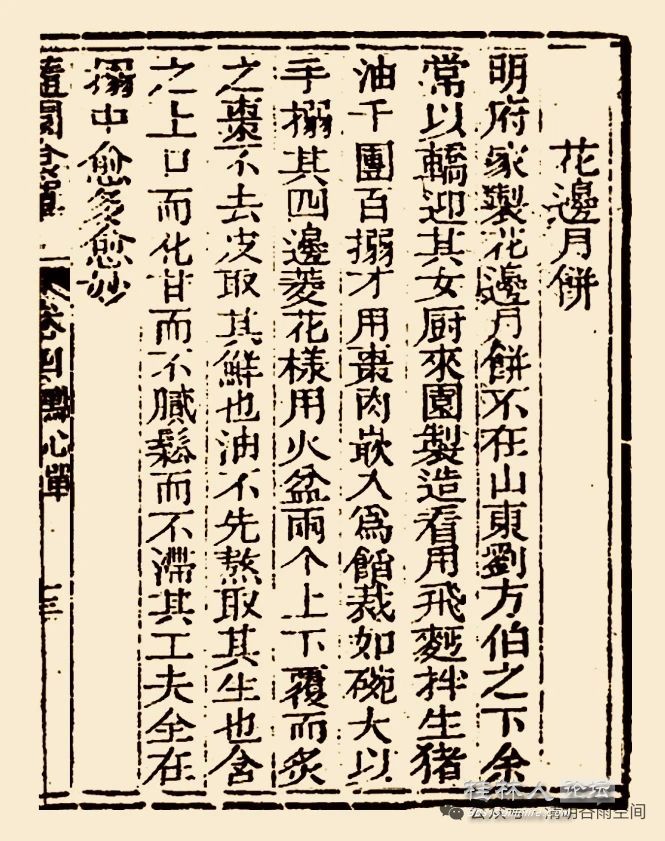 花邊月餅
明府家製花邊月餅不在山東劉方伯之下余
常以轎迎其女厨來園製造看用飛麪拌生猪
油千團百搦才用棗肉嵌入爲餡裁如碗大以
手搦其四邊菱花樣用火盆兩个上下覆而炙
之棗不去皮取其鮮也油不先熬取其生也含
之上口而化甘而不膩鬆而不滯其工夫全在
搦中愈多愈妙
隨園食單 卷四點心單 三
桂林人论坛
公众号 清明谷雨空间